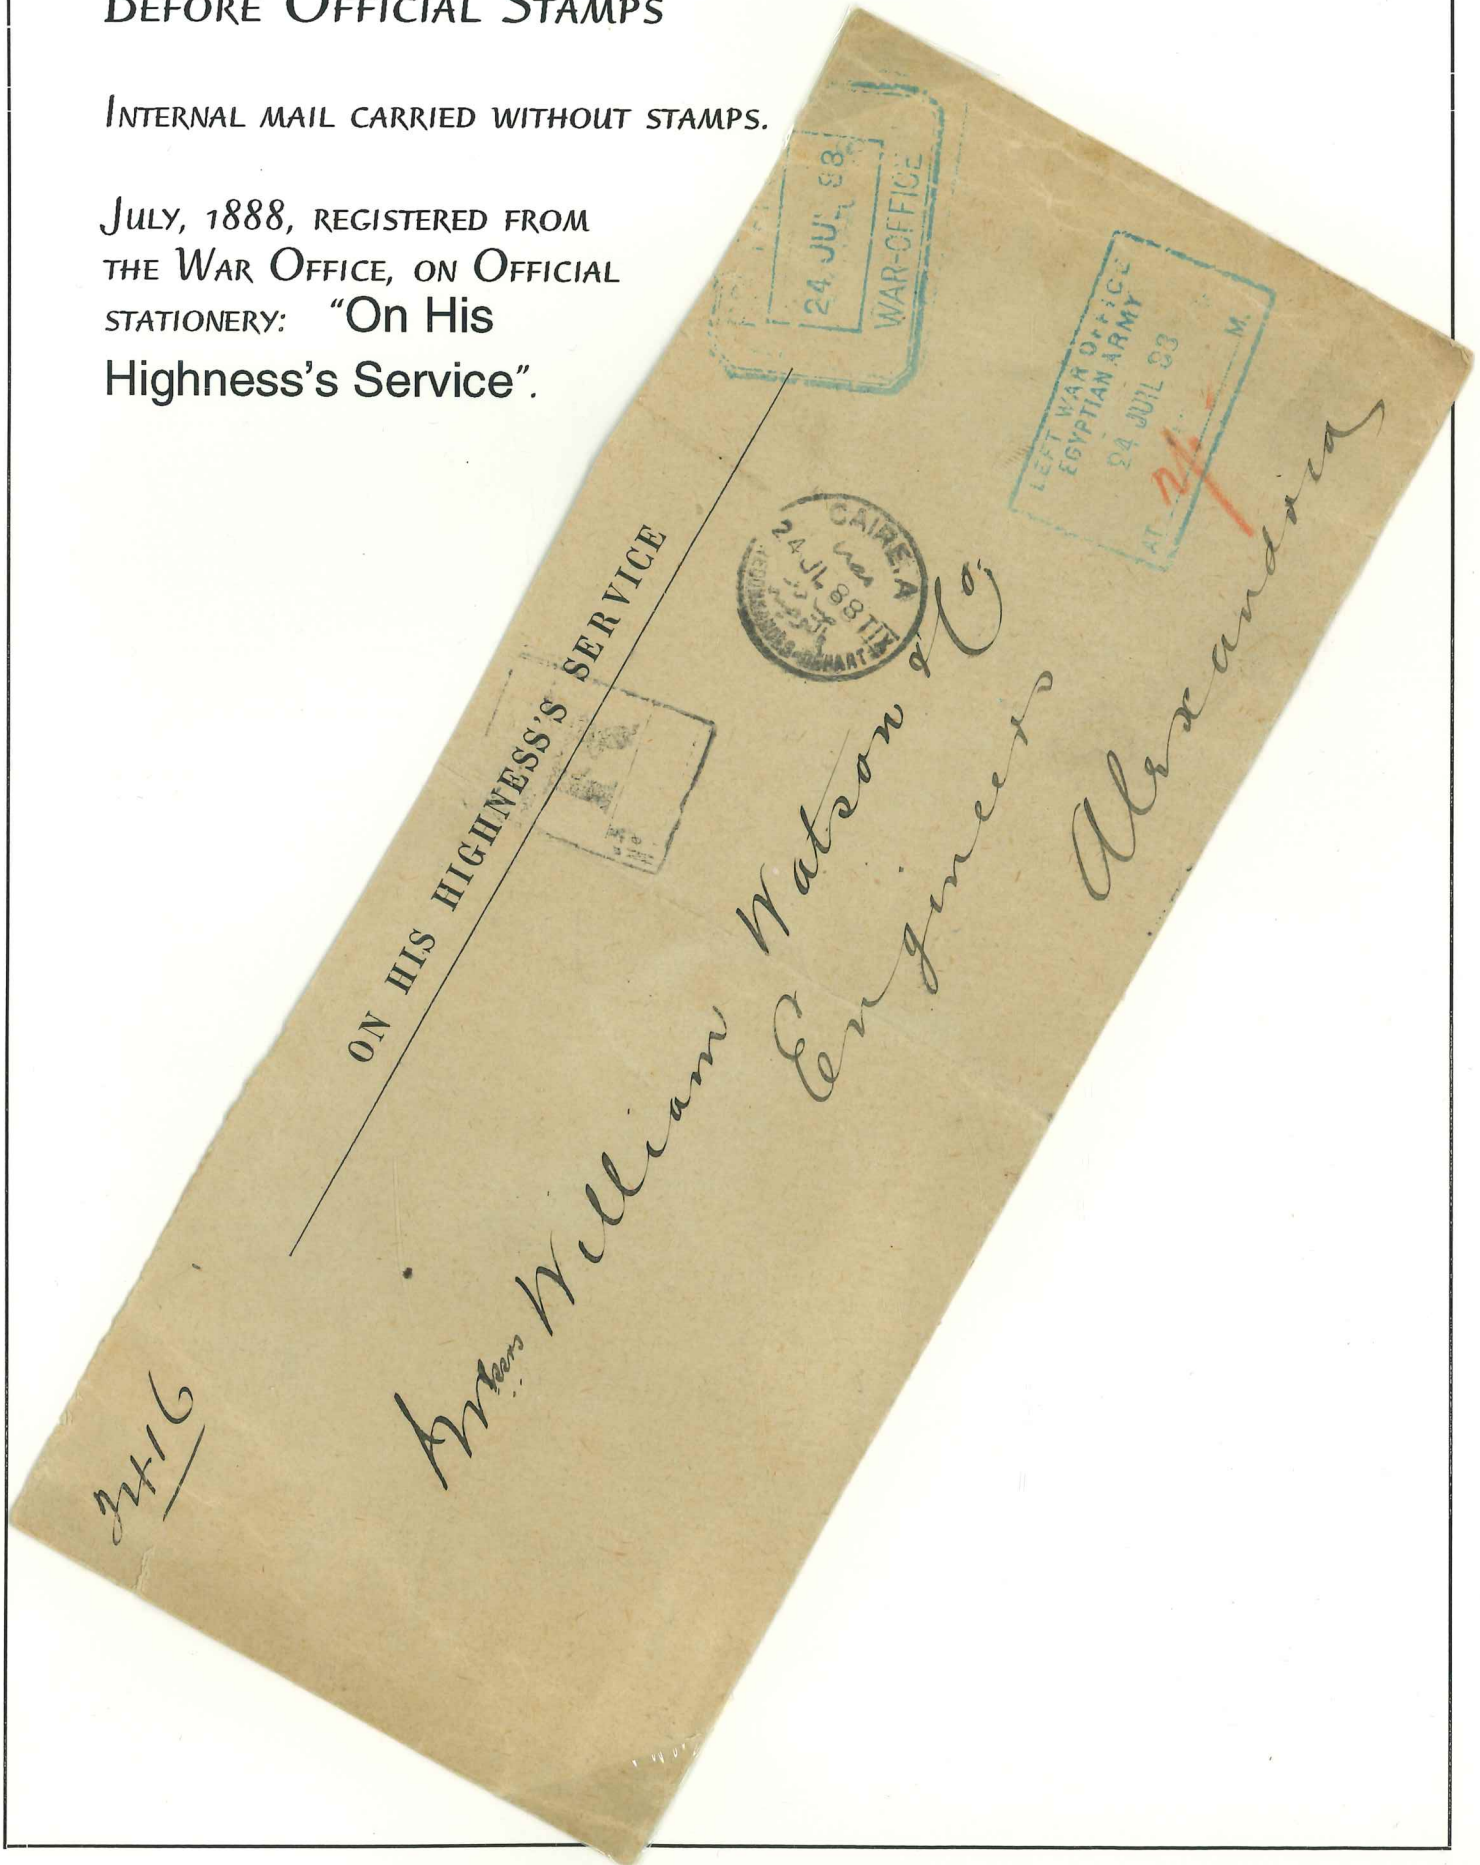 BEFORE OFFICIAL STAMPS
INTERNAL MAIL CARRIED WITHOUT STAMPS.
JULY, 1888, REGISTERED FROM
THE WAR OFFICE, ON OFFICIAL
STATIONERY: “On His
Highness’s Service”.
24 JUIL 88
WAR-OFFICE
LEFT WAR OFFICE
EGYPTIAN ARMY
24 JUIL 88
AT 2/ M.
ON HIS HIGHNESS'S SERVICE
CAIRE.A
24 JL 88 TIX
RECOMMANDÉS-DEPART
R
Messrs William Watson & Co.
Engineers
Alexandria
3416